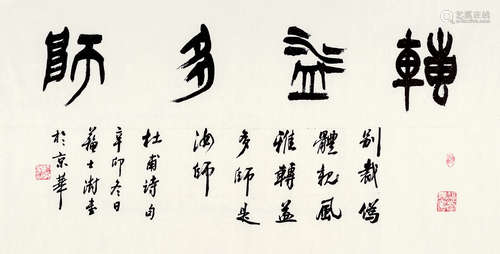 轉益多師
別裁偽
體親風
雅轉益
多師是
汝師
杜甫詩句
辛卯冬日
蘇士澍書
於京華